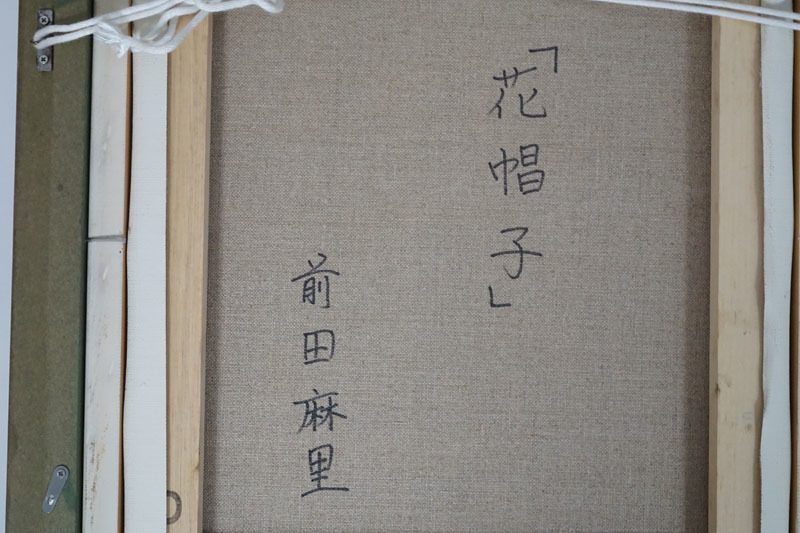 「花帽子」
前田麻里